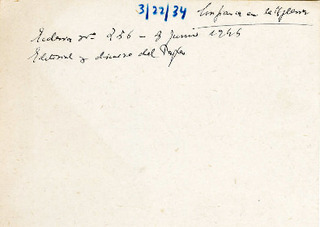 3/22/34 en la Iglesia
Ecclesia nº 256 - 8 Junio 1946
Editorial y discurso del Papa